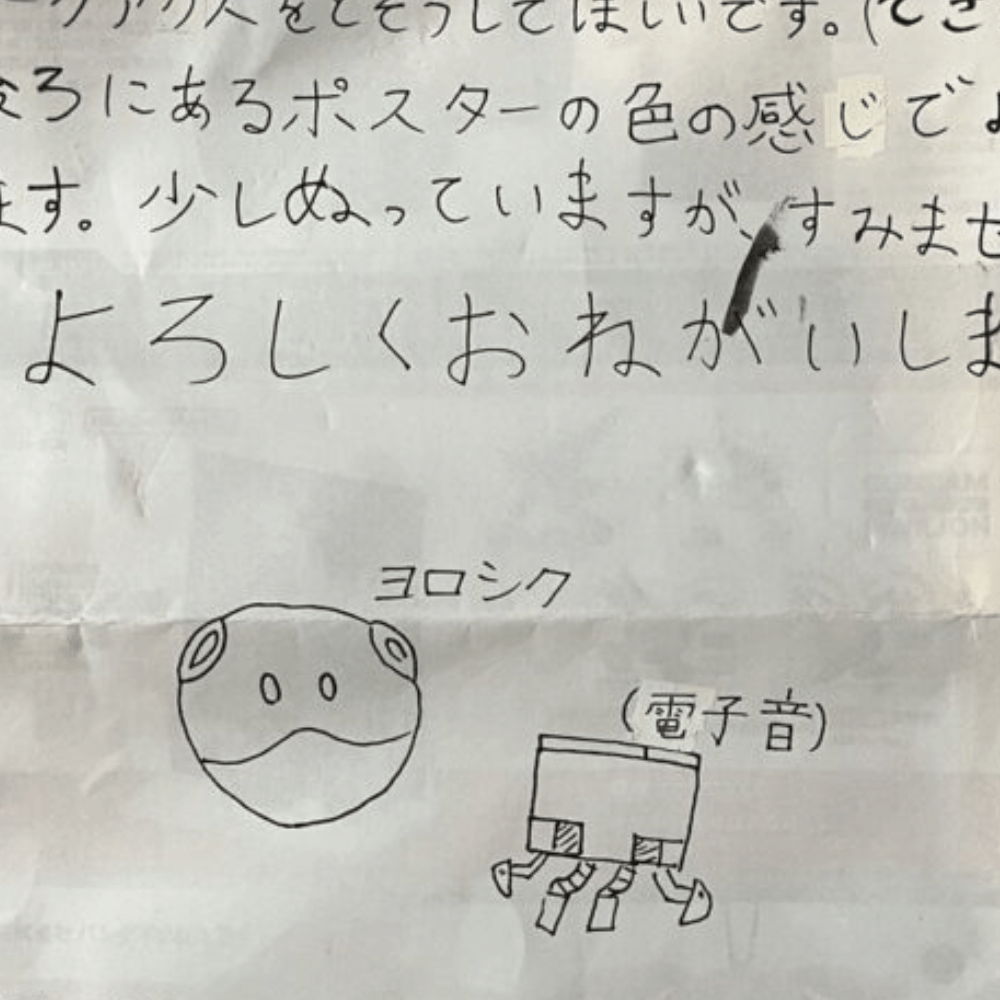 ークアクスをとそうしてほしいです。(でき
ろにあるポスターの色の感じでよ
ます。少しぬっていますが、すみませ
よろしくおねがいしま
ヨロシク
(電子音)